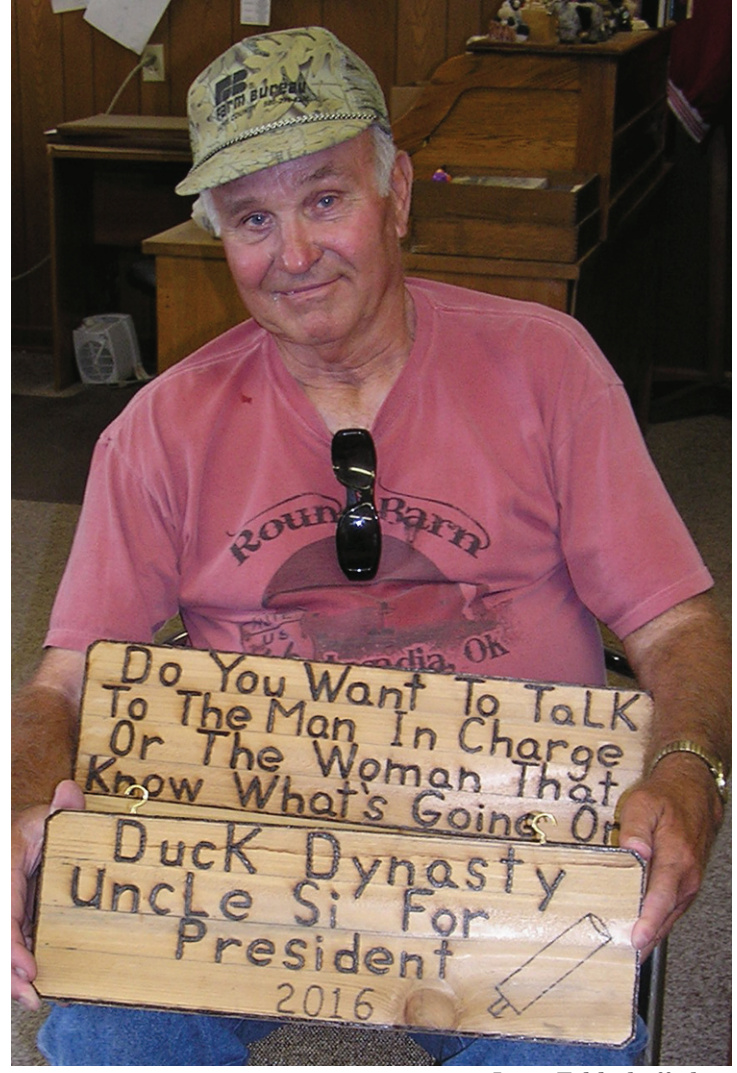 Farm Bureau
Round Barn
Arcadia, Ok
Do You Want To TaLK
To The Man In Charge
Or The Woman That
Know What's Going On
Duck Dynasty
Uncle Si For
President
2016